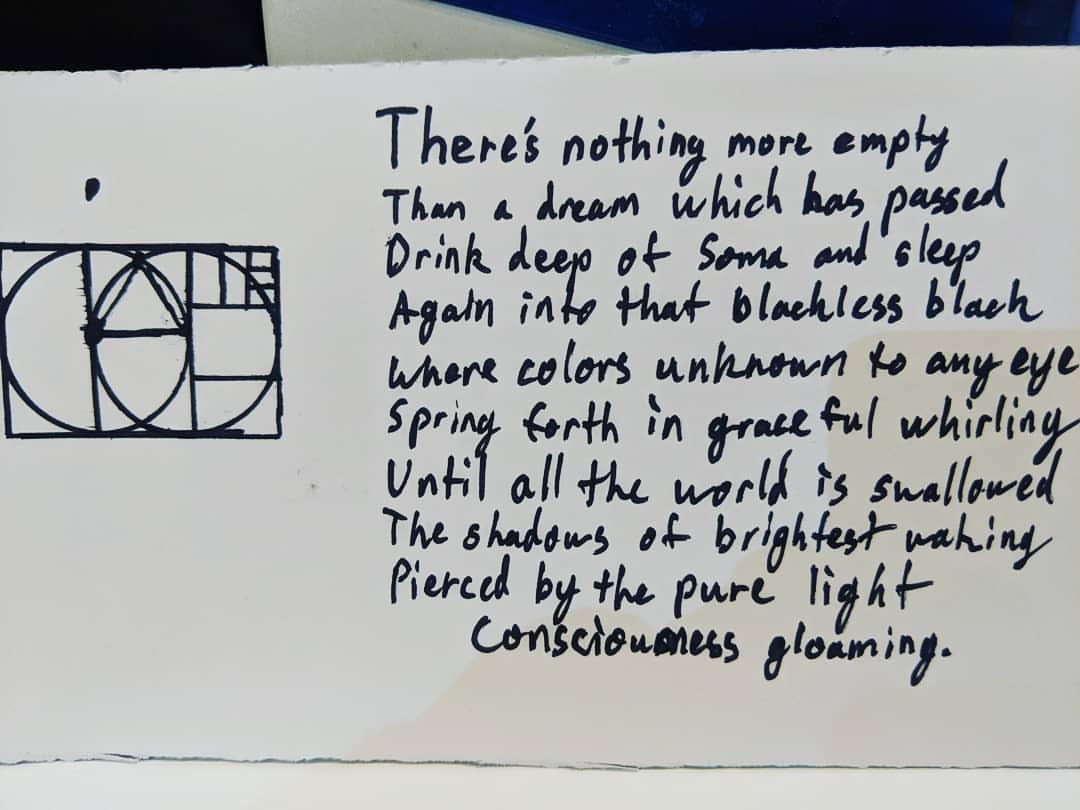 There's nothing more empty
Than a dream which has passed
Drink deep of Soma and sleep
Again into that blackless black
Where colors unknown to any eye
Spring forth in graceful whirling
Until all the world is swallowed
The shadows of brightest waking
Pierced by the pure light
Consciousness gloaming.